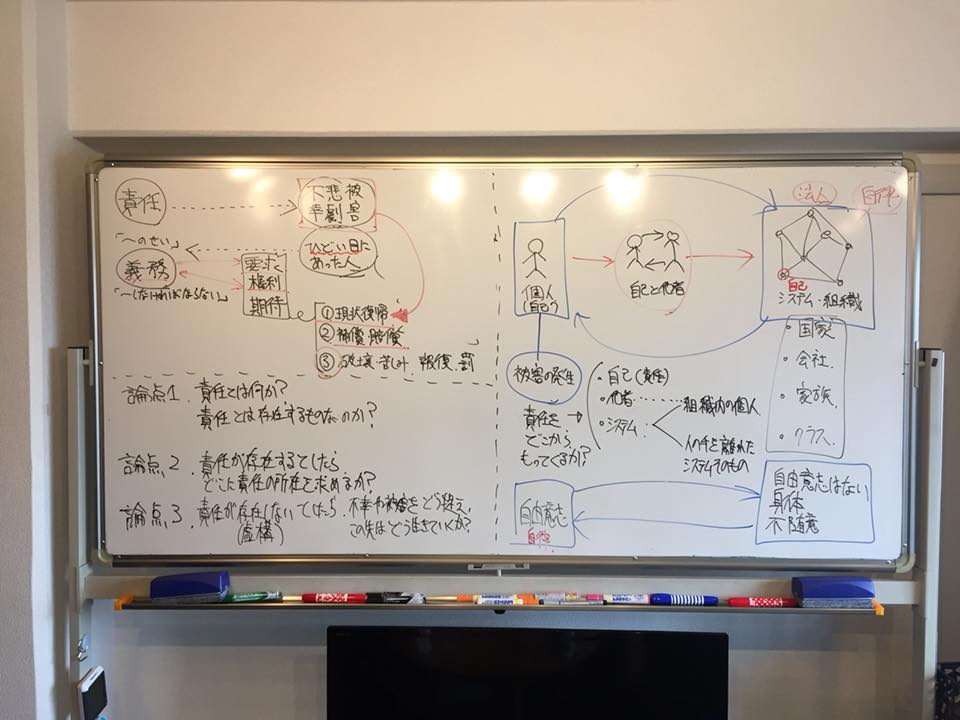 責任
不悲被
幸劇害
「〜のせい」
ひどい目に
あった人
義務
「〜しなければならない」
要求
権利
期待
①現状復帰
②補償・賠償
③破壊・苦しみ 報復・罰
論点1 責任とは何か?
責任とは存在するものなのか?
論点2 責任が存在するてしたら
どこに責任の所在を求めるか?
論点3 責任が存在しないてしたら
(虚構)
不幸や被害をどう捉え、
この先はどう生きていくか?
個人
(自己?)
自己と他者
法人
自己
システム・組織
・国家
・会社
・家族
・クラス
被害の発生
責任を
どこから
もってくるか?
・自己(責任)
・他者
・システム
組織内の個人
人の手を離れた
システムそのもの
自由意志
自由意志はない
身体
不随意